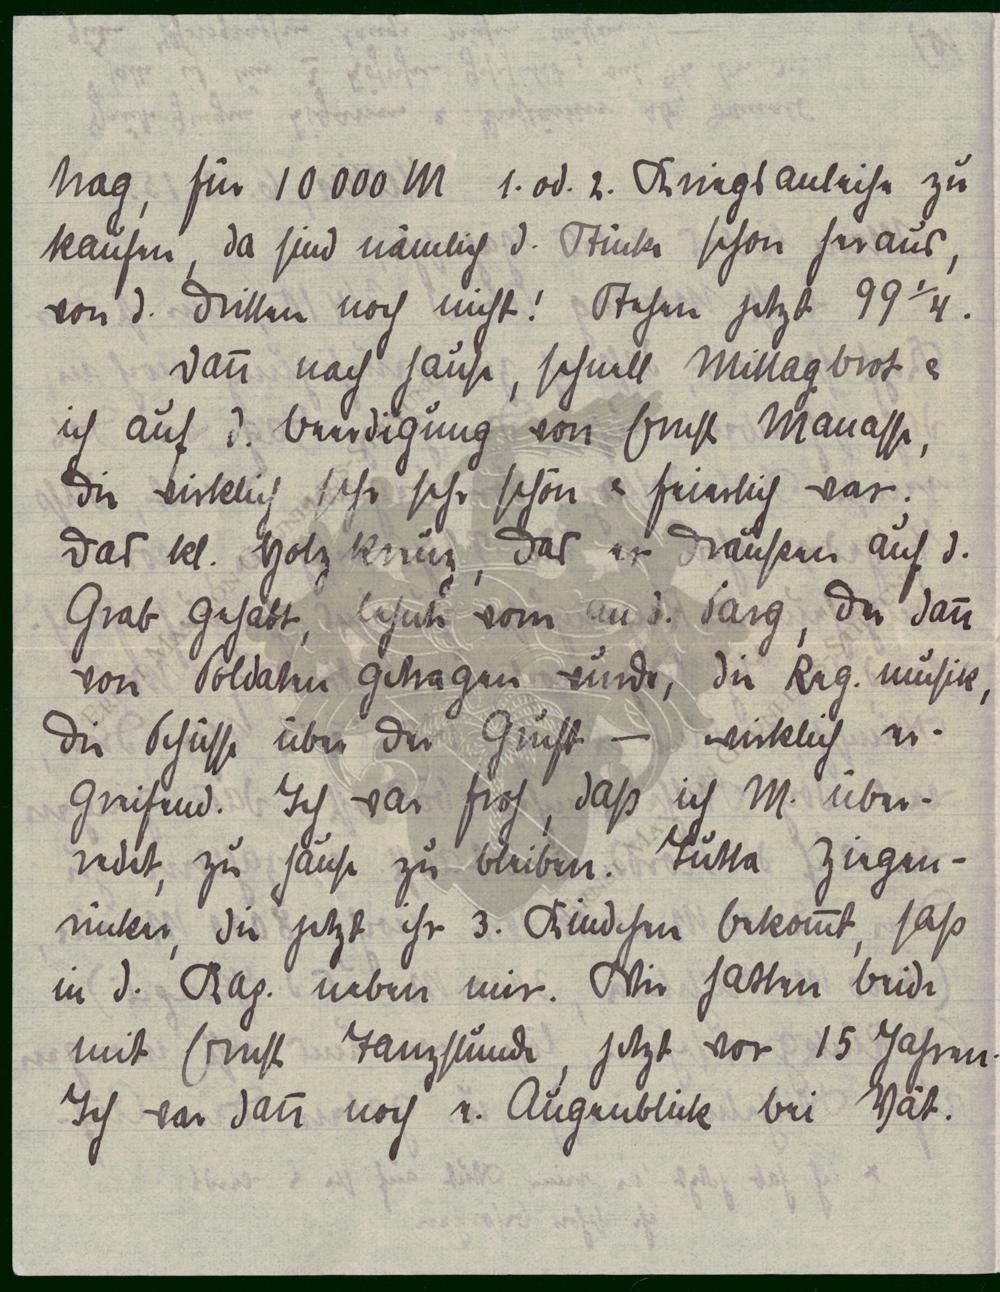 trag, für 10 000 M 1. od. 2. Kriegsanleihe zu
kaufen, da sind nämlich d. Stücke schon heraus,
von d. dritten noch nicht! Stehen jetzt 99 1/4.
Dan̅ nach Hause, schnell Mittagbrot &
ich auf d. Beerdigung von Ernst Manasse,
die wirklich sehr sehr schön & feierlich war.
Das kl. Holzkreuz, das er draußen auf d.
Grab gehabt, lehnte vorn an d. Sarg, der dan̅
von Soldaten getragen wurde, die Reg. musik,
die Schüsse über der Gruft — wirklich er-
greifend. Ich war froh, daß ich M. über-
redet, zu Hause zu bleiben. Jutta Ziegen-
rücker, die jetzt ihr 3. Kindchen bekom̅t, saß
in d. Kap. neben mir. Wir hatten beide
mit Ernst Tanzstunde, jetzt vor 15 Jahren.
Ich war dan̅ noch e. Augenblick bei Vät.